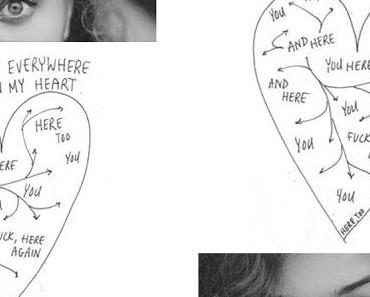 EVERYWHERE
MY HEART
HERE
TOO
YOU
YOU
HERE
AGAIN
YOU
AND HERE
YOU HERE
AND
HERE
YOU
YOU
YOU
HERE, TOO